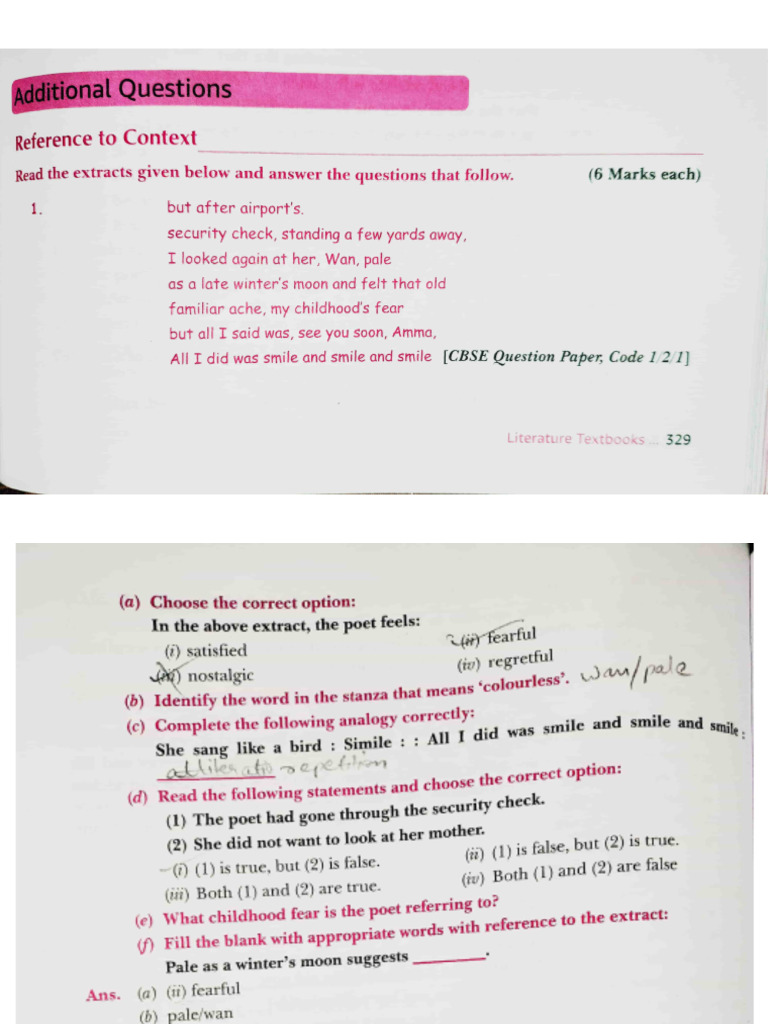 Additional Questions
Reference to Context
Read the extracts given below and answer the questions that follow. (6 Marks each)
1. but after airport's.
security check, standing a few yards away,
I looked again at her, Wan, pale
as a late winter's moon and felt that old
familiar ache, my childhood's fear
but all I said was, see you soon, Amma,
All I did was smile and smile and smile [CBSE Question Paper, Code 1/2/1]
Literature Textbooks ... 329
(a) Choose the correct option:
In the above extract, the poet feels:
(i) satisfied (ii) fearful
(iii) nostalgic (iv) regretful
(b) Identify the word in the stanza that means 'colourless'. wan/pale
(c) Complete the following analogy correctly:
She sang like a bird : Simile : : All I did was smile and smile and smile :
alliteratio repetition
(d) Read the following statements and choose the correct option:
(1) The poet had gone through the security check.
(2) She did not want to look at her mother.
(i) (1) is true, but (2) is false. (ii) (1) is false, but (2) is true.
(iii) Both (1) and (2) are true. (iv) Both (1) and (2) are false
(e) What childhood fear is the poet referring to?
(f) Fill the blank with appropriate words with reference to the extract:
Pale as a winter's moon suggests ________.
Ans. (a) (ii) fearful
(b) pale/wan